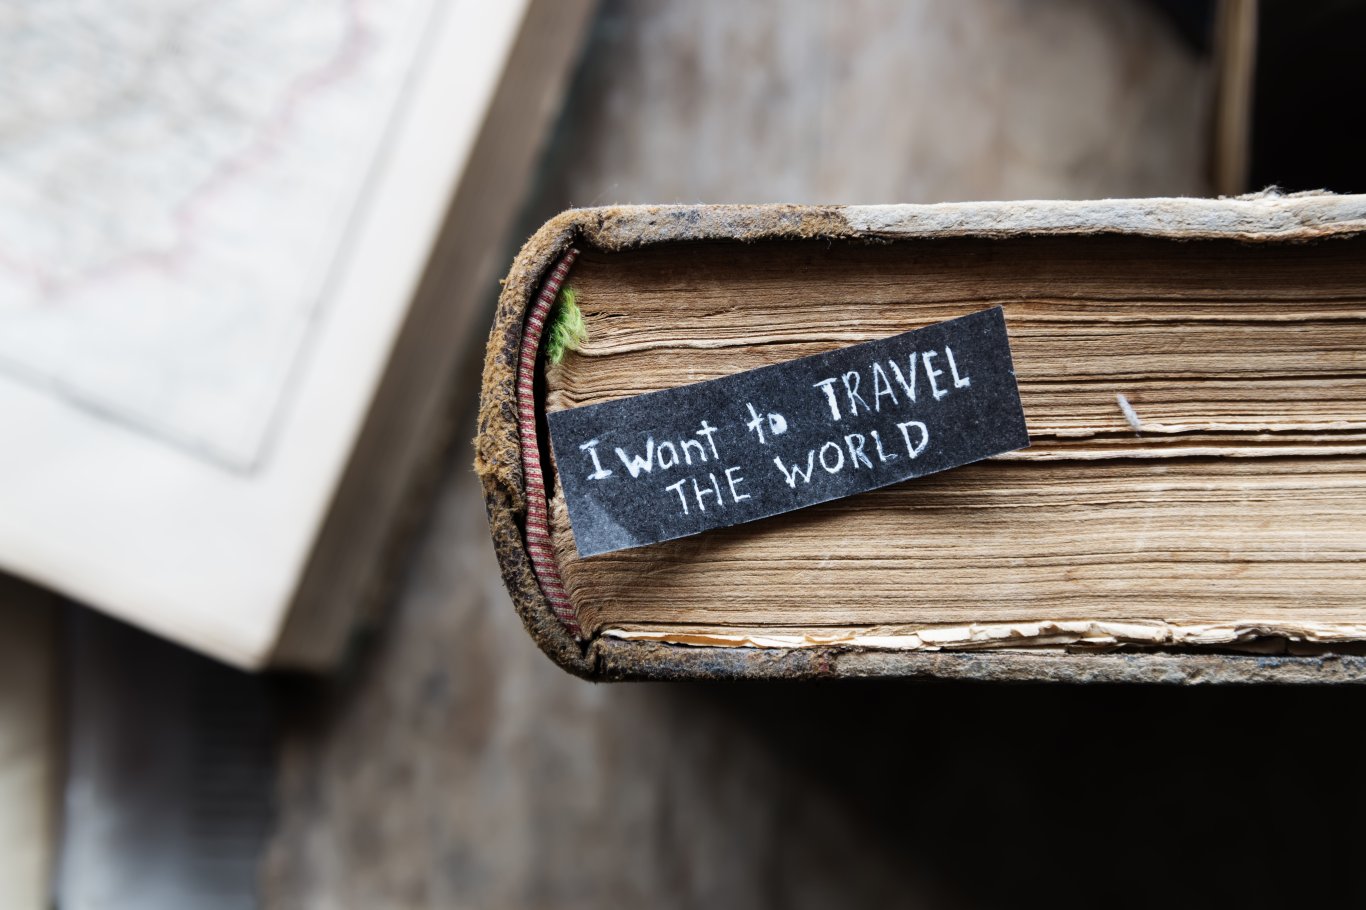 I Want to TRAVEL
THE WORLD